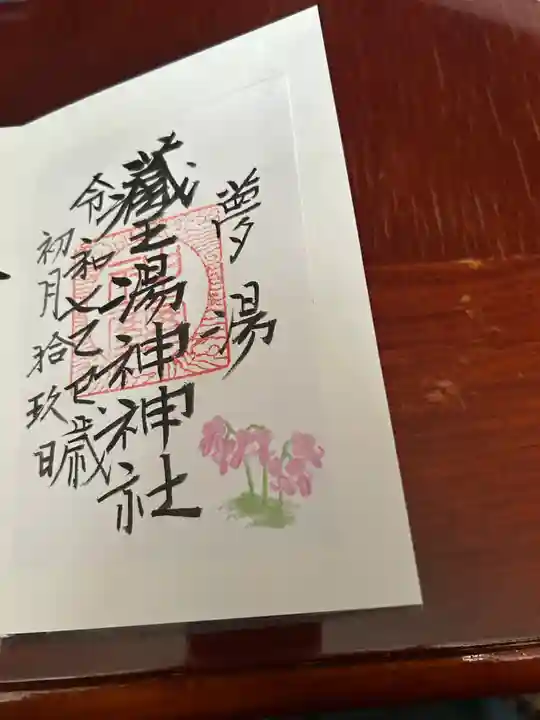 夢湯
蔵王湯神神社
令和七乙巳歳
初月拾玖日